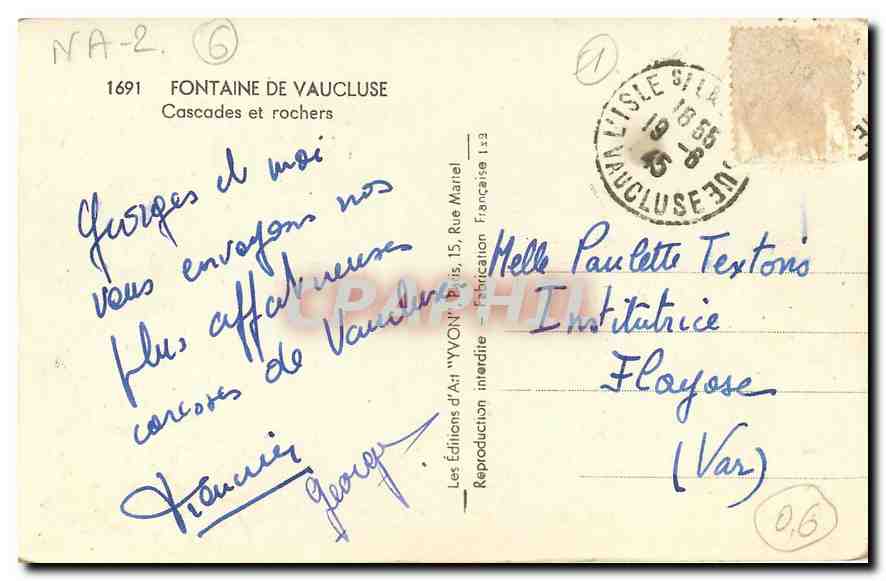 NA-2. 6
1
1691 FONTAINE DE VAUCLUSE
Cascades et rochers
L'ISLE S/ LA
18 55
19 -8
45
VAUCLUSE
Georges et moi
vous envoyons nos
plus affectueuses
caresses de Vaucluse
George
Les Editions d'Art "YVON" Paris, 15, Rue Martel
Reproduction interdite - Fabrication Française 1x3
CPAPHIL
Melle Paulette Textoris
Institutrice
Flayosc
(Var)
0,6